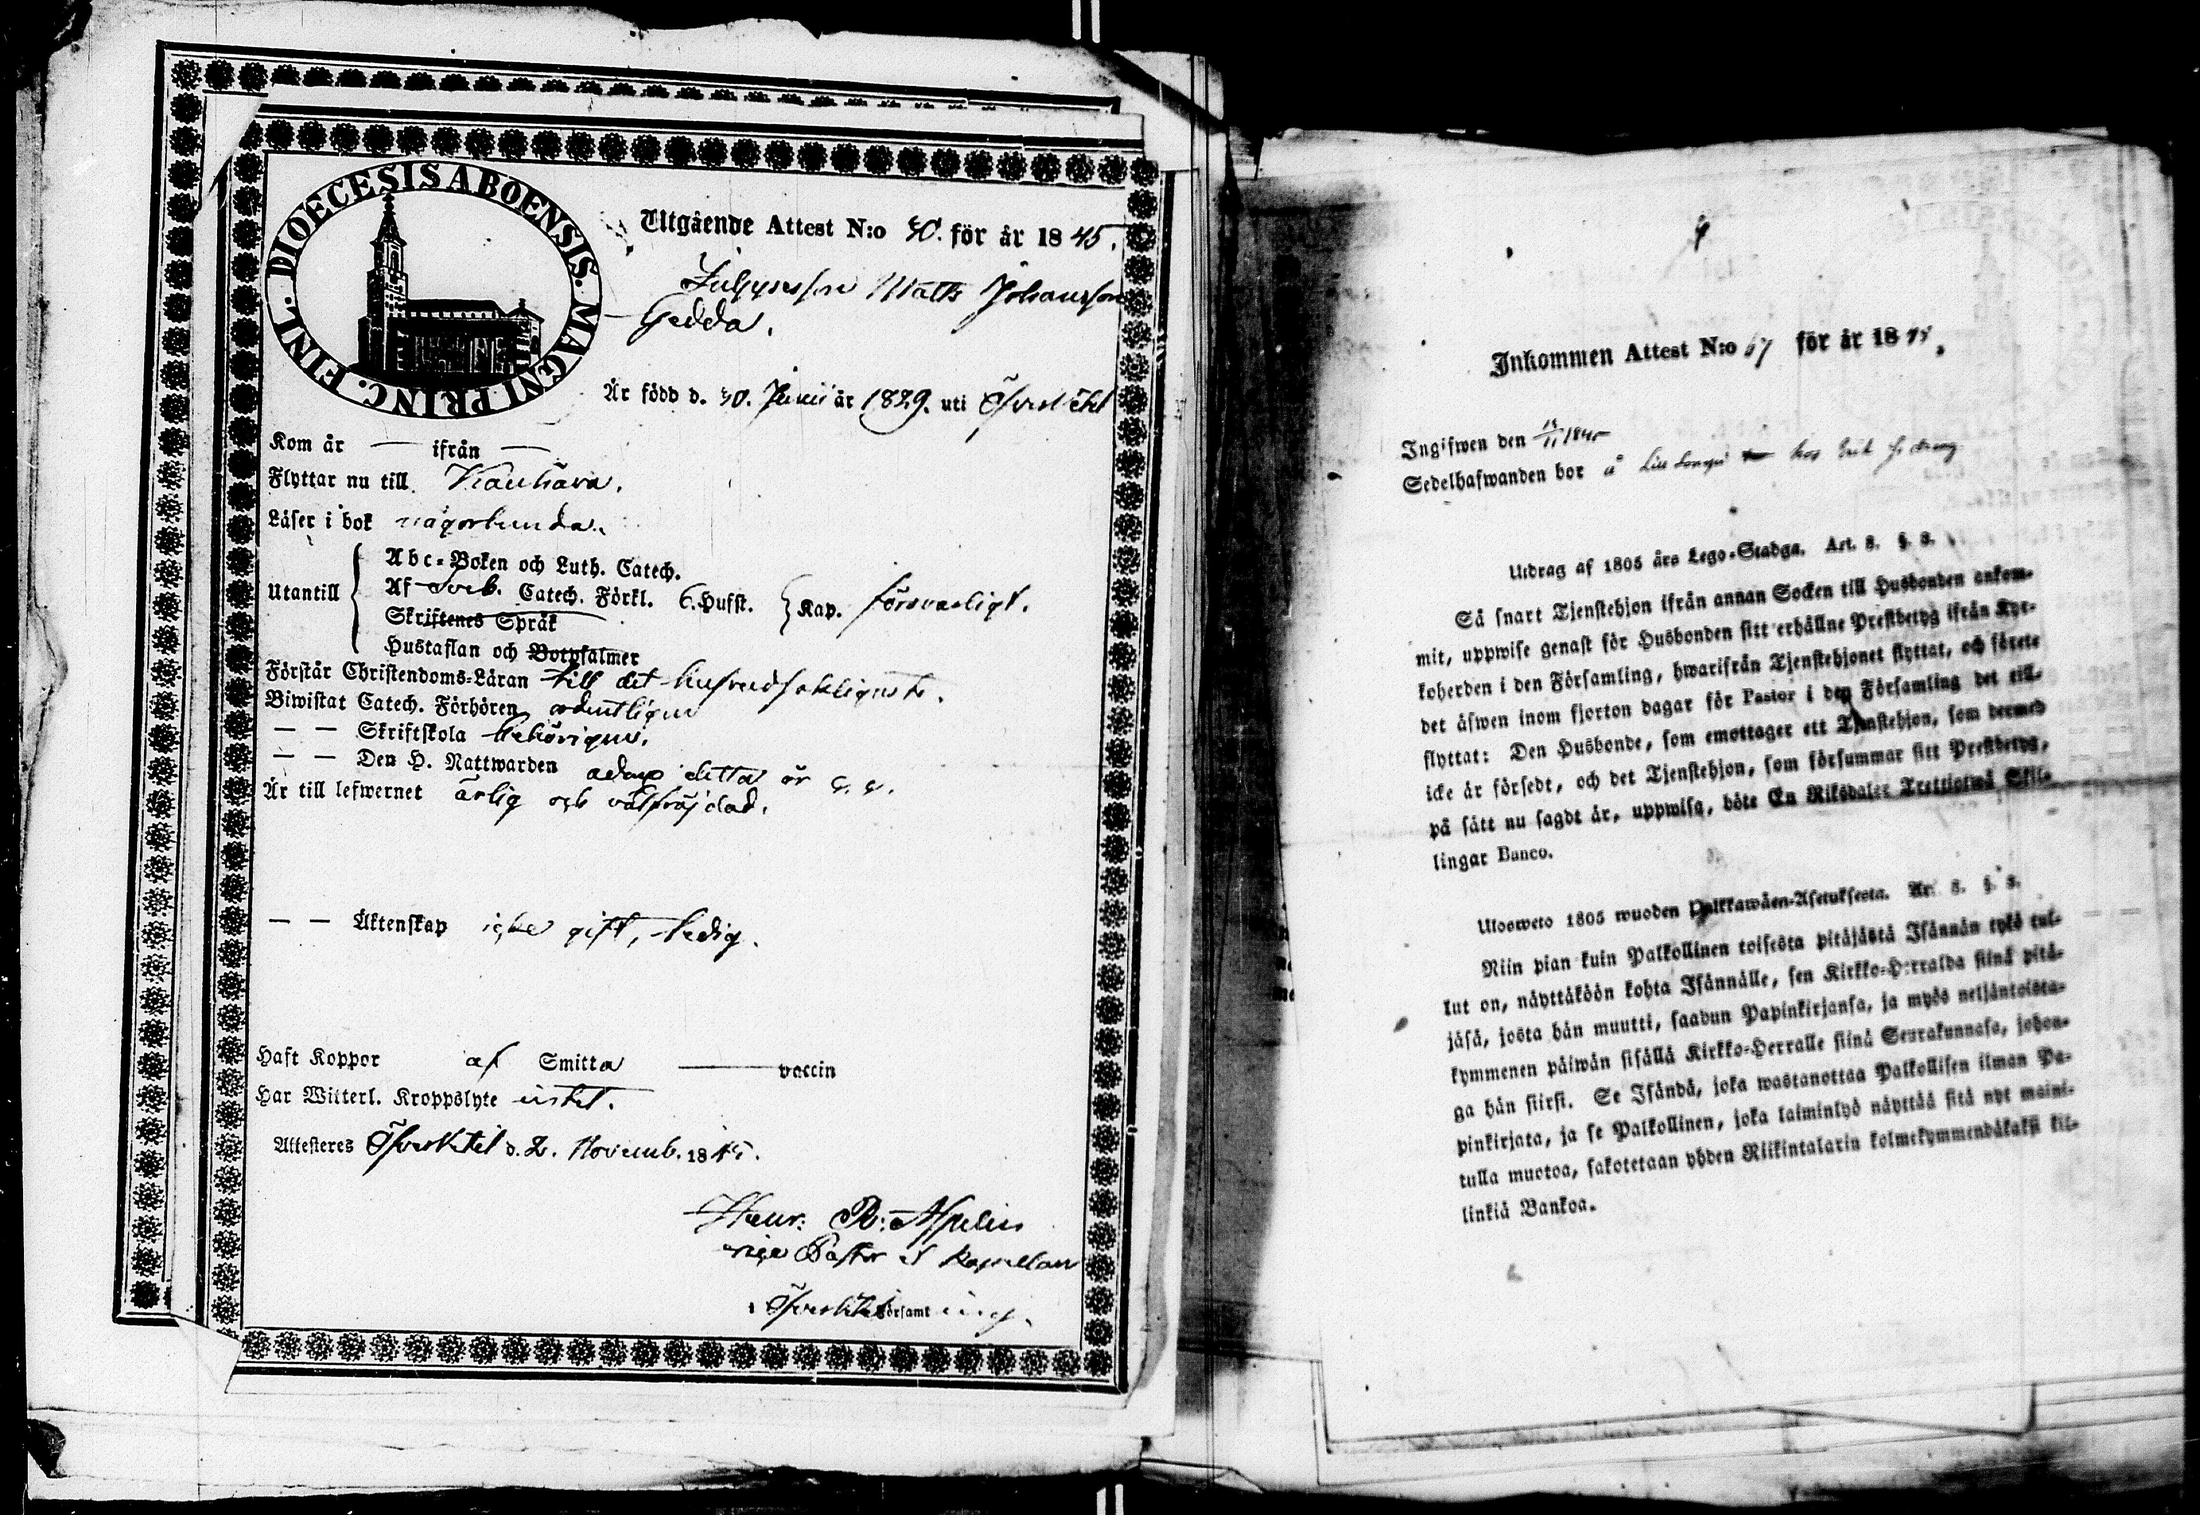 DIOECESIS ABOENSIS. MAGNI PRINC. FINL.
Utgående Attest N:o 40. för år 1845.
Matts Johansson
Gedda.
Är född d. 30. Junii år 1829. uti Öfverkihl
Kom år — ifrån —
Flyttar nu till Kauhava.
Läser i bok någorlunda.
Utantill
Abc-Boken och Luth. Catech.
Af Sveb. Catech. Förkl. 6. Hufst. Kap. försvarligt.
Skriftenes Språk
Hustaflan och Botpsalmer
Förstår Christendoms-Läran till det hufvudsakligaste.
Biwistat Catech. Förhören ordentligen
— — Skriftskola behörigen.
— — Den H. Nattwarden detta år
Är till lefwernet ärlig och välfräjdad.
— — Äktenskap icke gift, ledig.
Haft Koppor af Smitta — vaccin
Har Witterl. Kroppslyte intet.
Attesteras d. 2. Novemb. 1845.
Henr: R: Aspelin
Pastor & Kapellan
i Församling.
Inkommen Attest N:o 67 för år 1845.
Ingifwen den 1845
Sedelhafwanden bor å hos Erik
Utdrag af 1805 års Lego-Stadga. Art. 8. §. 8.
Så snart Tjenstehjon ifrån annan Socken till Husbonden ankom-
mit, uppwise genast för Husbonden sitt erhållne Prestbetyg ifrån Kyr-
koherden i den Församling, hwarifrån Tjenstehjonet flyttat, och förete
det äfwen inom fjorton dagar för Pastor i den Församling det till-
flyttat: Den Husbonde, som emottager ett Tjenstehjon, som dermed
icke är försedt, och det Tjenstehjon, som försummar sitt Prestbetyg,
på sätt nu sagdt är, uppwisa, böte En Riksdaler Trettiotwå Skil-
lingar Banco.
Ulosweto 1805 wuoden Palkkawäen-Asetuksesta. Art. 8. §. 8.
Niin pian kuin Palkollinen toisesta pitäjästä Isännän tykö tul-
lut on, näyttäköön kohta Isännälle, sen Kirkko-Herralda siinä pitä-
jäsä, josta hän muutti, saadun Papinkirjansa, ja myös neljäntoista-
kymmenen päiwän sisällä Kirkko-Herralle siinä Seurakunnasa, johon-
ga hän siirsi. Se Isändä, joka wastanottaa Palkollisen ilman Pa-
pinkirjata, ja se Palkollinen, joka laiminlyö näyttää sitä nyt maini-
tulla muotoa, sakotetaan yhden Riikintalarin kolmekymmendäkaksi kil-
linkiä Bankoa.